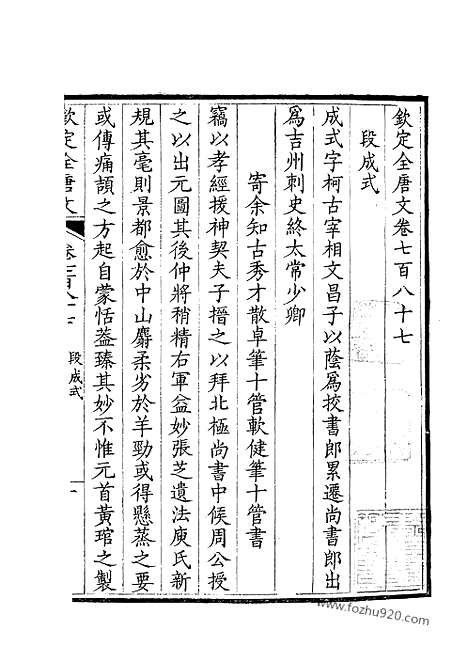 欽定全唐文卷七百八十七
段成式
成式字柯古宰相文昌子以蔭爲挍書郎累遷尚書郎出
爲吉州刺史終太常少卿
寄余知古秀才散卓筆十管軟健筆十管書
竊以孝經援神契夫子搢之以拜北極尚書中候周公授
之以出元圖其後仲將稍精右軍益妙張芝遺法庾氏新
規其毫則景都愈於中山麝柔劣於羊勁或得懸蒸之要
或傳痛頡之方起自蒙恬葢臻其妙不惟元首黃琯之製
欽定全唐文
卷七百八十七
段成式
一
www.fozhu920.com